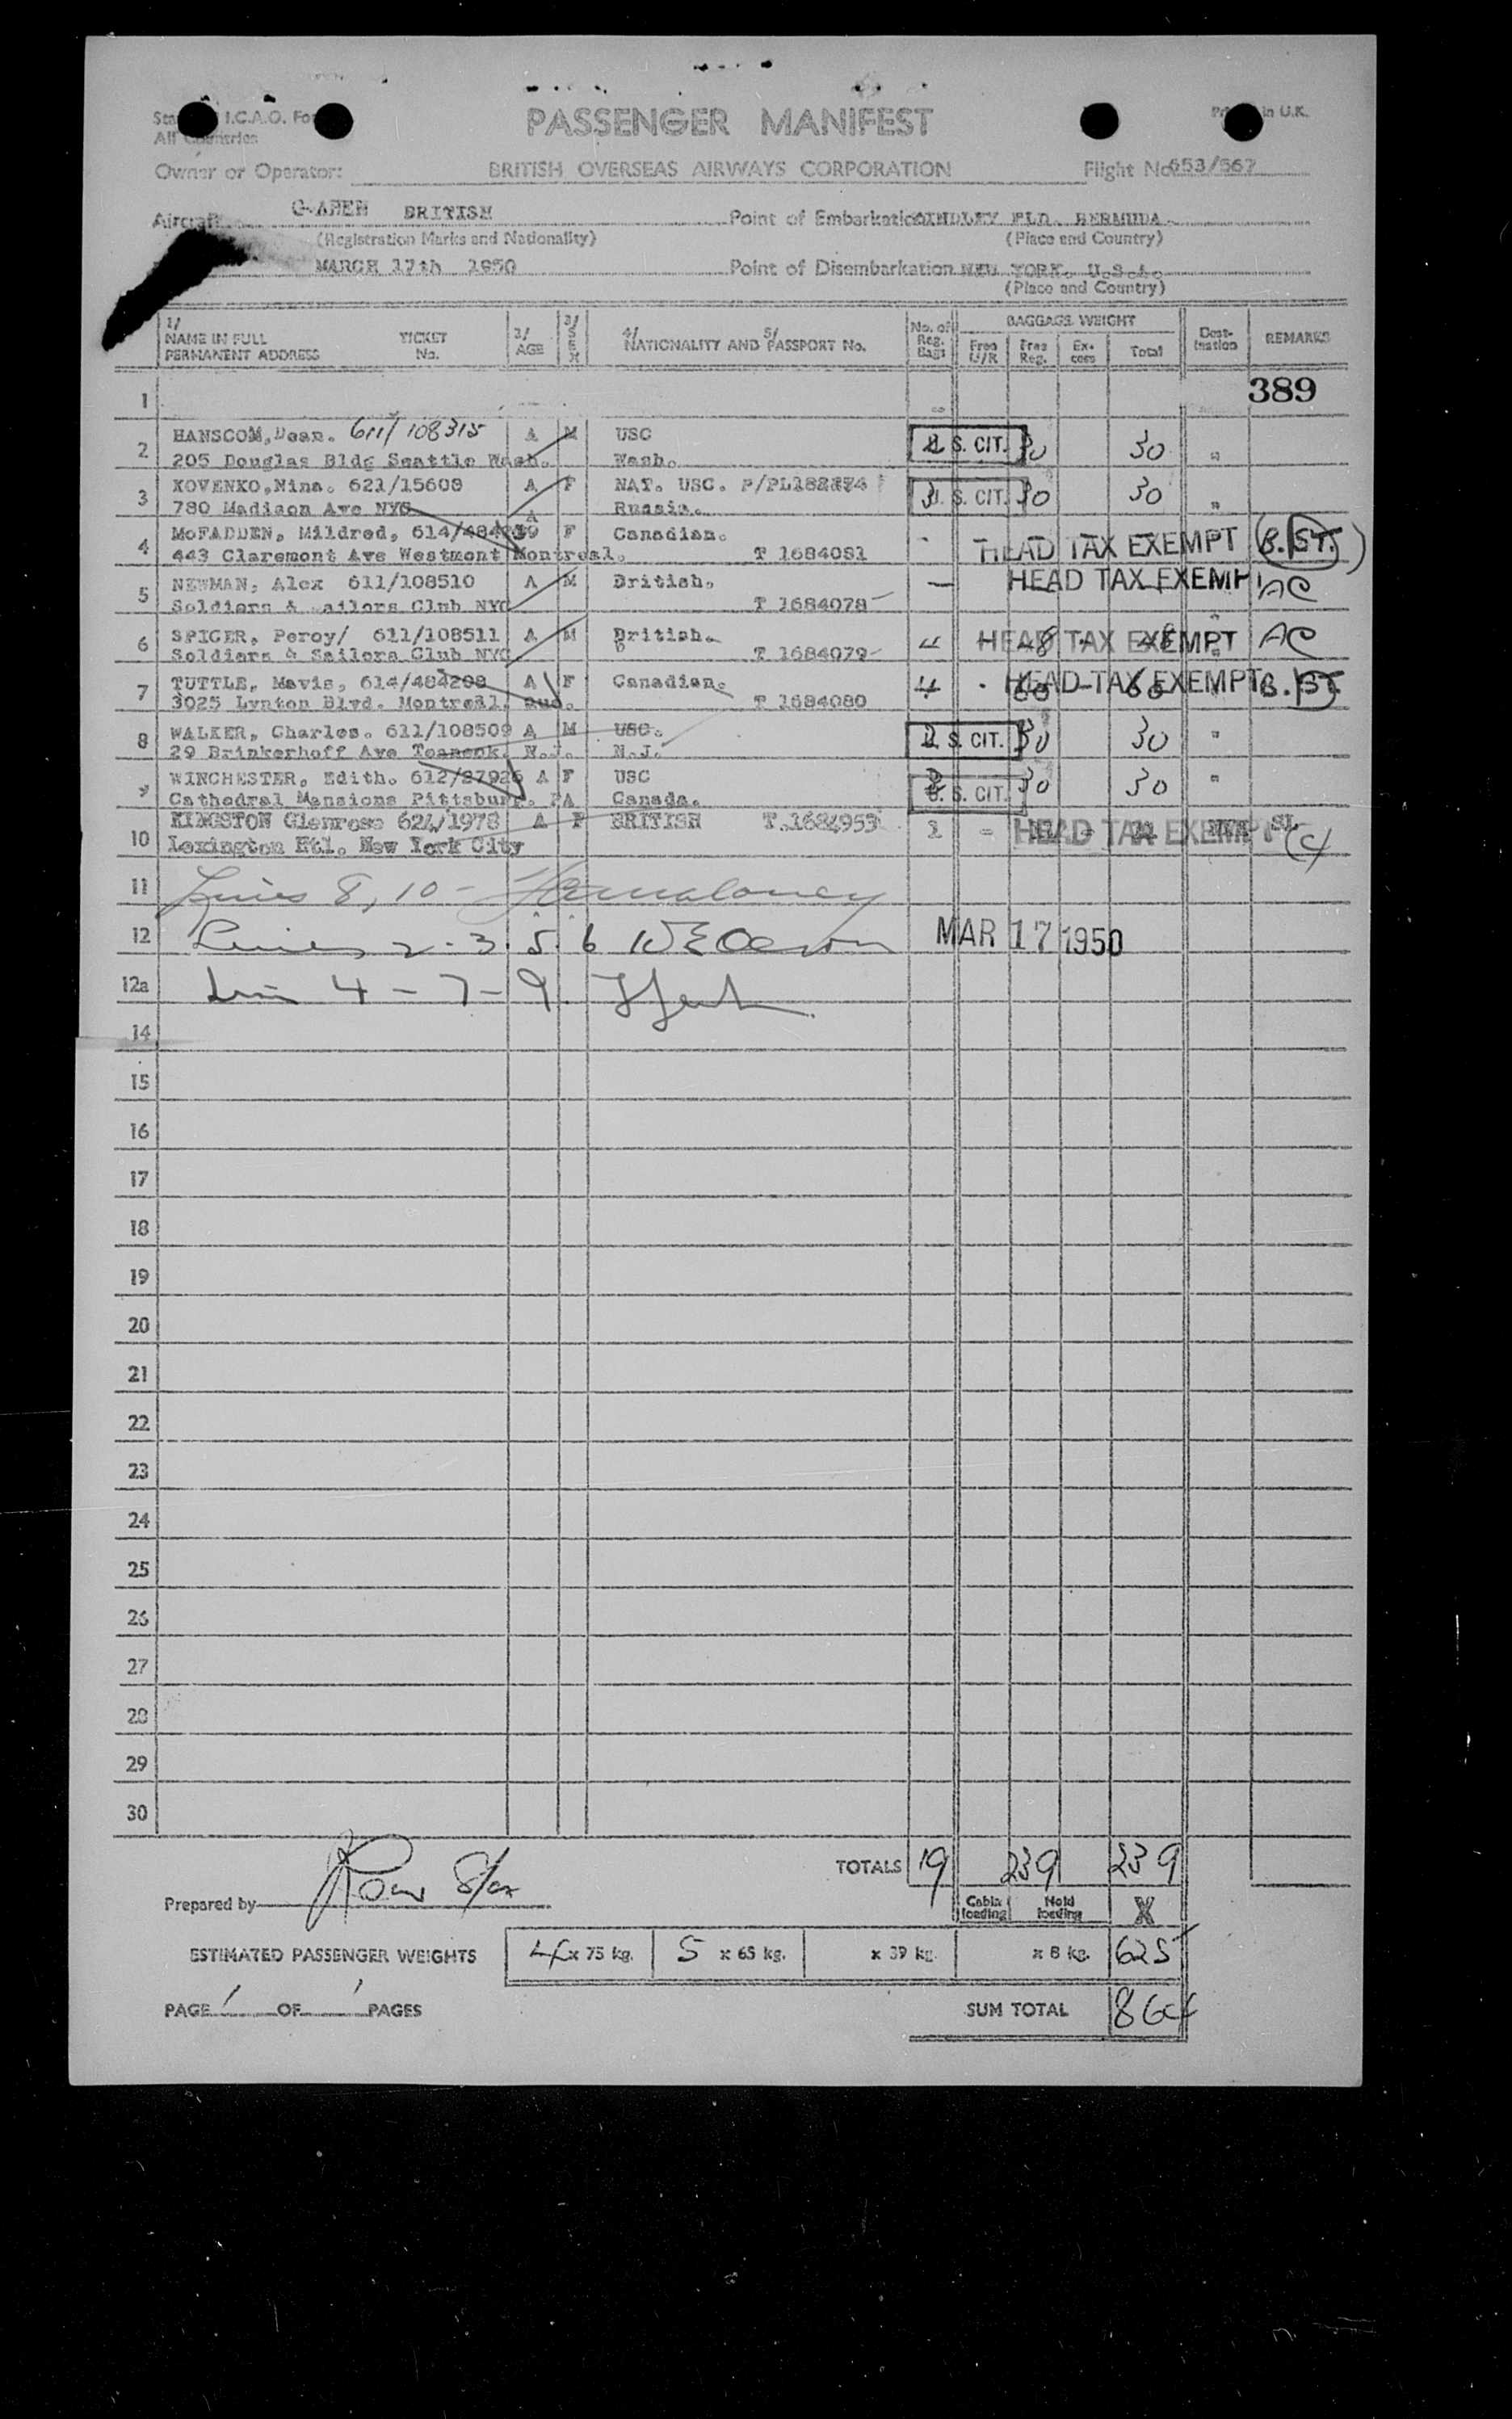 PASSENGER MANIFEST
I.C.A.O.
All Countries
in U.K.
Owner or Operator: BRITISH OVERSEAS AIRWAYS CORPORATION Flight No 653/567
Aircraft BRITISH Point of Embarkation KINDLEY FLD. BERMUDA
(Registration Marks and Nationality) (Place and Country)
MARCH 17th 1950 Point of Disembarkation NEW YORK. U.S.A.
(Place and Country)
1/ NAME IN FULL PERMANENT ADDRESS TICKET No. 2/ AGE 3/ SEX 4/ 5/ NATIONALITY AND PASSPORT No. No. of Reg. Bags BAGGAGE WEIGHT Free U/R Free Reg. Excess Total Destination REMARKS
1 389
2 HANSCOM, Dean. 611/108315 A M USC U.S. CIT. 30 30 "
205 Douglas Bldg Seattle Wash. Wash.
3 KOVENKO, Nina. 621/15608 A F NAT. USC. U.S. CIT. 30 30 "
780 Madison Ave NYC Russia.
4 McFADDEN, Mildred, A F Canadian. HEAD TAX EXEMPT (B.ST.)
443 Claremont Ave Westmont Montreal. T 1684081
5 NEWMAN, Alex 611/108510 A M British. — HEAD TAX EXEMP AC
Soldiers & Sailors Club NYC T 1684078
6 SPICER, Percy/ 611/108511 A M British. HEAD TAX EXEMPT AC
Soldiers & Sailors Club NYC T 1684079
7 TUTTLE, Mavis, 614/484208 A F Canadian. 4 HEAD TAX EXEMPT B. ST.
3025 Lynton Blvd. Montreal. Que. T 1684080
8 WALKER, Charles. 611/108509 A M USC. U.S. CIT. 30 30 "
29 Brinkerhoff Ave Teaneck. N.J. N.J.
9 WINCHESTER, Edith. 612/27926 A F USC U.S. CIT. 30 30 "
Cathedral Mansions Pittsburg. PA Canada.
10 KINGSTON Glenrose 624/1978 A F BRITISH T.1684953 1 HEAD TAX EXEMPT
Lexington Htl. New York City
11 Lines 8, 10 -
12 Lines 2-3.5.6 MAR 17 1950
12a Lin 4 - 7 - 9
14
15
16
17
18
19
20
21
22
23
24
25
26
27
28
29
30
TOTALS 19 239 239
Prepared by
Cabin loading Hold loading X
ESTIMATED PASSENGER WEIGHTS 4 x 75 kg. 5 x 65 kg. x 39 kg. x 8 kg. 625
PAGE 1 OF 1 PAGES SUM TOTAL 864